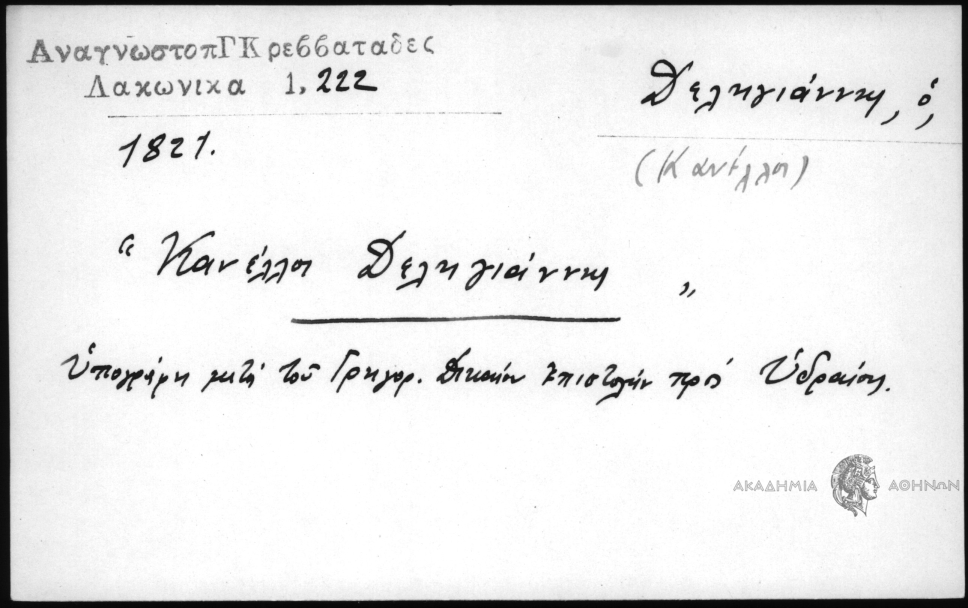 ΑναγνωστοπΓΚρεββαταδες
Λακωνικα 1, 222
Δεληγιάννης, ὁ,
1821.
(Κανέλλος)
“ Κανέλλος Δεληγιάννης „
Ὑπογράφει μετὰ τοῦ Γρηγορ. Δικαίου ἐπιστολὴν πρὸς Ὑδραίους.
ΑΚΑΔΗΜΙΑ ΑΘΗΝΩΝ